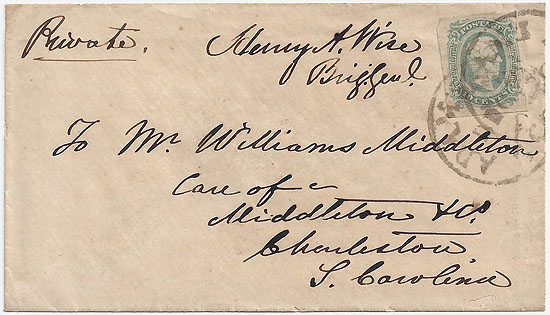 Private. Henry A. Wise
Brig. Genl.
POSTAGE
TEN CENTS
To Mr Williams Middleton
Care of
Middleton & Co
Charleston
S. Carolina